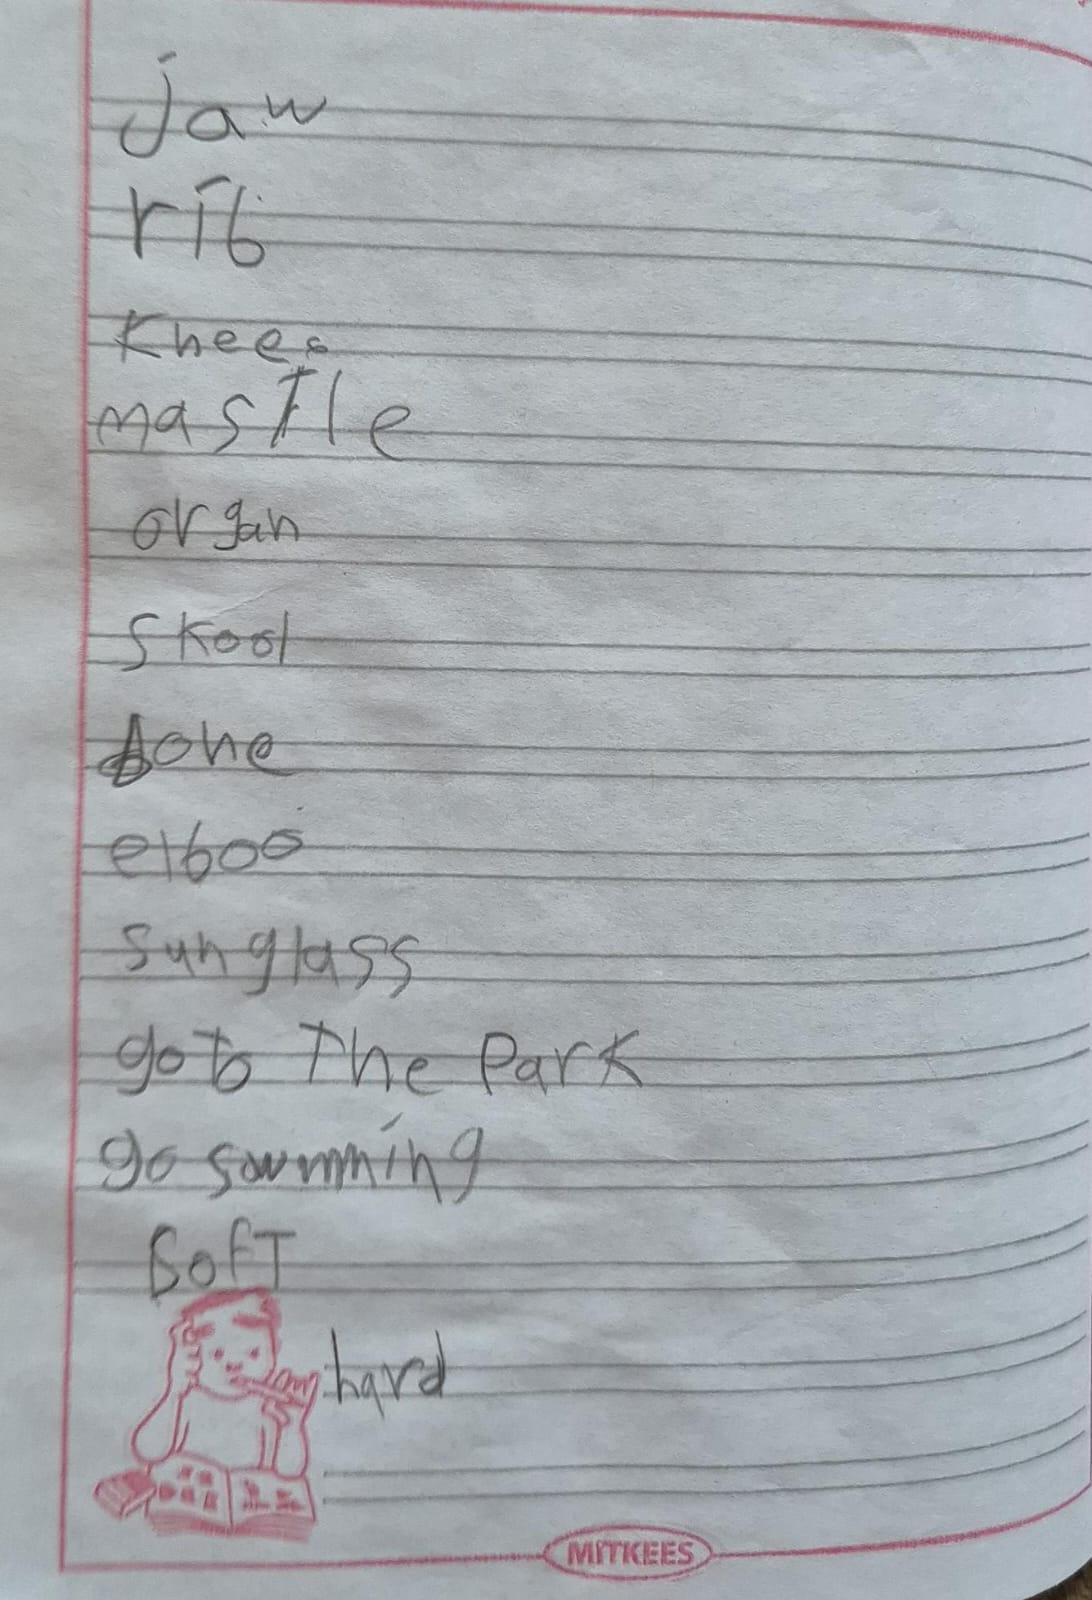 jaw
rib
Knees
mastle
organ
skool
bone
elboo
sunglass
go to The Park
go swmming
Soft
hard
MITKEES